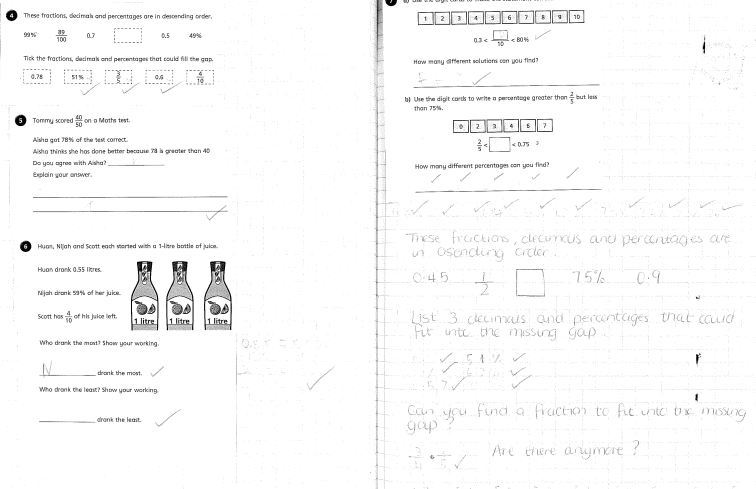 4 These fractions, decimals and percentages are in descending order.
99% 89/100 0.7 0.5 49%
Tick the fractions, decimals and percentages that could fill the gap.
0.78 51% 3/5 0.6 4/10
5 Tommy scored 40/50 on a Maths test.
Aisha got 78% of the test correct.
Aisha thinks she has done better because 78 is greater than 40
Do you agree with Aisha?
Explain your answer.
6 Huan, Nijah and Scott each started with a 1-litre bottle of juice.
Huan drank 0.55 litres.
Nijah drank 59% of her juice.
Scott has 4/10 of his juice left.
1 litre 1 litre 1 litre
Who drank the most? Show your working.
N drank the most.
Who drank the least? Show your working.
drank the least.
1 2 3 4 5 6 7 8 9 10
0.3 < /10 < 80%
How many different solutions can you find?
b) Use the digit cards to write a percentage greater than 2/5 but less
than 75%.
0 2 3 4 6 7
2/5 < < 0.75
How many different percentages can you find?
These fractions, decimals and percentages are
in asending order.
0.45 1/2 75% 0.9
List 3 decimals and percentages that could
fit into the missing gap.
Can you find a fraction to fit into the missing
gap?
Are there anymore?